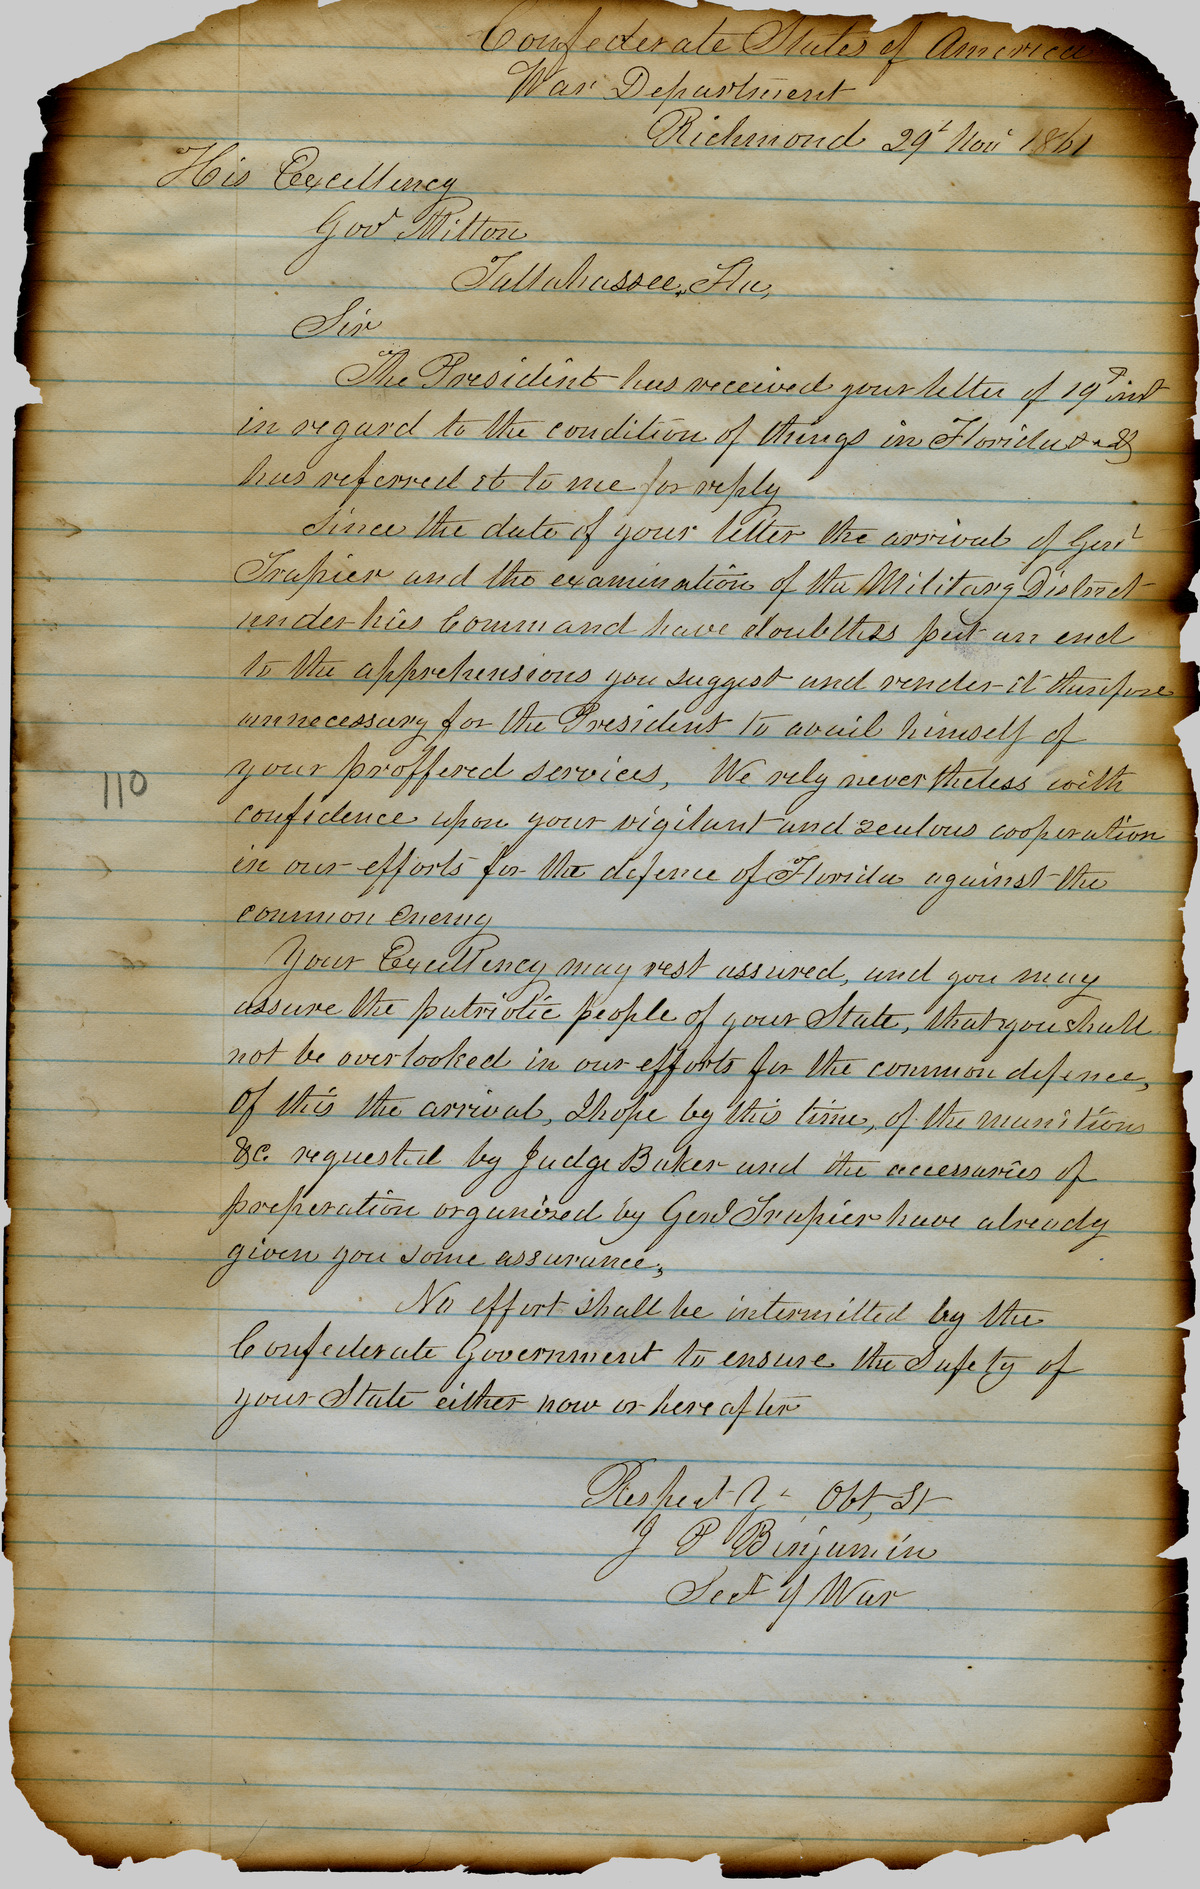 Confederate States of America
War Department
Richmond 29t Nov 1861
His Excellency
Govr Milton
Tallahassee, Fla,
Sir
The President has received your letter of 19th inst
in regard to the condition of things in Florida &
has referred it to me for reply
Since the date of your letter the arrival of Genl
Trapier and the examination of the Military District
under his Command have doubtless put an end
to the apprehensions you suggest and render it therefore
unnecessary for the President to avail himself of
your proffered services, We rely nevertheless with
110
confidence upon your vigilant and zealous cooperation
in our efforts for the defence of Florida against the
common Enemy
Your Excellency may rest assured, and you may
assure the patriotic people of your State, that you shall
not be overlooked in our efforts for the common defence,
Of this the arrival, I hope by this time, of the munitions
&c. requested by Judge Baker and the accessaries of
preperation organized by Genl Trapier have already
given you some assurance,
No effort shall be intermitted by the
Confederate Government to ensure the Safety of
your State either now or hereafter
Respect Y Obt, St
J P Binjamin
Sect of War